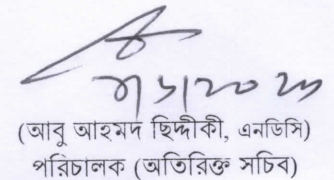 (আবু আহমদ ছিদ্দীকী, এনডিসি)
পরিচালক (অতিরিক্ত সচিব)